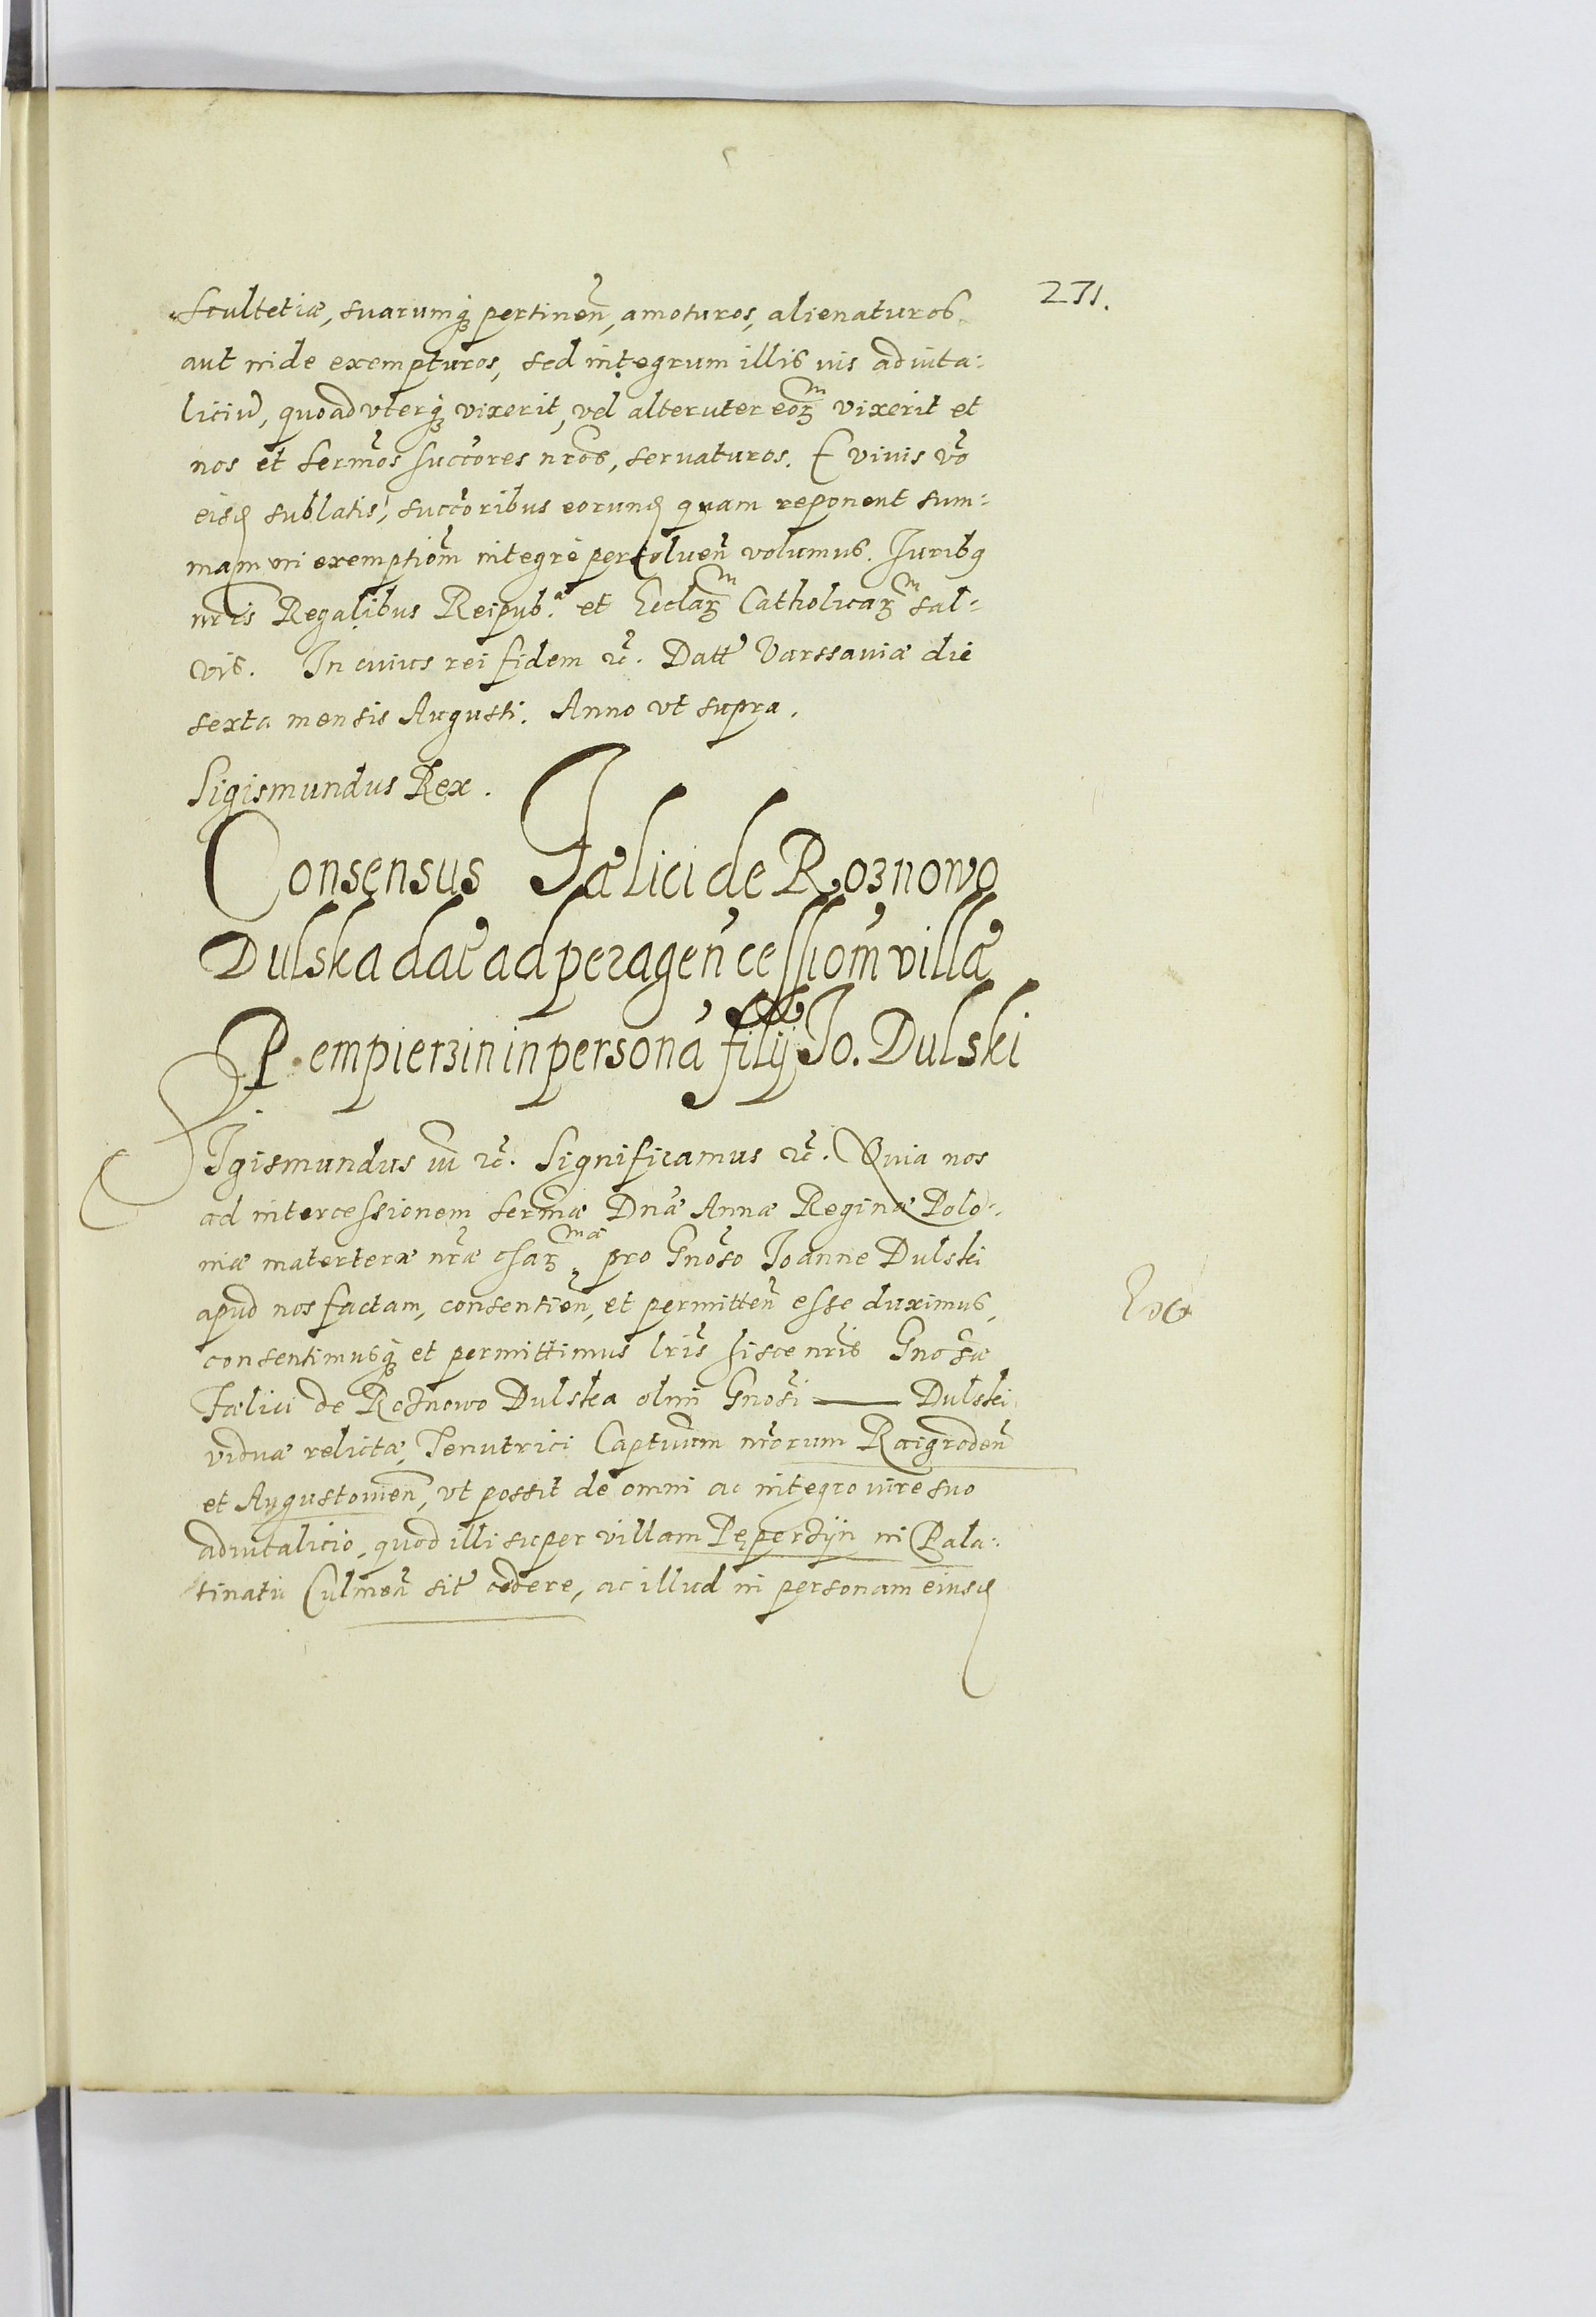 231.
Scultetiæ, suarumq́ꝫ pertineñ, amoturos, alienaturos
aut inde exempturos, sed integrum illis ius aduita:
liciū, quoad vterq́ꝫ vixerit, vel alteruter eoꝝᵐ vixerit et
nos et sermõs succ̃ores nrõs, seruaturos. E viuis võ
eisd̃ sublatis, succ̃oribus eorund̃ quam reponent sum:
mam in exemptiom̃ integrè persolueñ volumus. Juribꝰ
nrĩs Regalibus Reipub.ᵃᵉ et Ecclaꝝᵐ Catholicaꝝᵐ sal:
vis. In cuius rei fidem ꝛc̃. Datt̃ Varssauiæ die
sexta mensis Augusti. Anno vt supra.
Sigismundus Rex.
Consensus Fælici de Roznowo
Dulska dat̃ ad perageñ cessiom̃ villæ
Pempierzin in personã filij Jo. Dulski
SIgismundus iii ꝛc̃. Significamus ꝛc̃. Quia nos
ad intercessionem sermæ̃ Dnæ̃ Annæ Reginæ Polo:
niæ materteræ nræ̃ chaꝝᵐᵃᵉ pro Gnõso Joanne Dulski
apud nos factam, consentieñ, et permitteñ esse duximus,
consentimusq́ꝫ et permittimus lrĩs hisce nrĩs Gnõsæ
Fælici de Roznowo Dulska olim Gnõsi —— Dulski
viduæ relictæ, Tenutrici Captuum̃ nrõrum Raigrodeñ
et Augustouieñ, vt possit de omni ac integro iure suo
aduitalicio, quod illi super villam Pęperziin in Pala:
tinatu Culmeñ sit̃ cedere, ac illud in personam eiusd̃